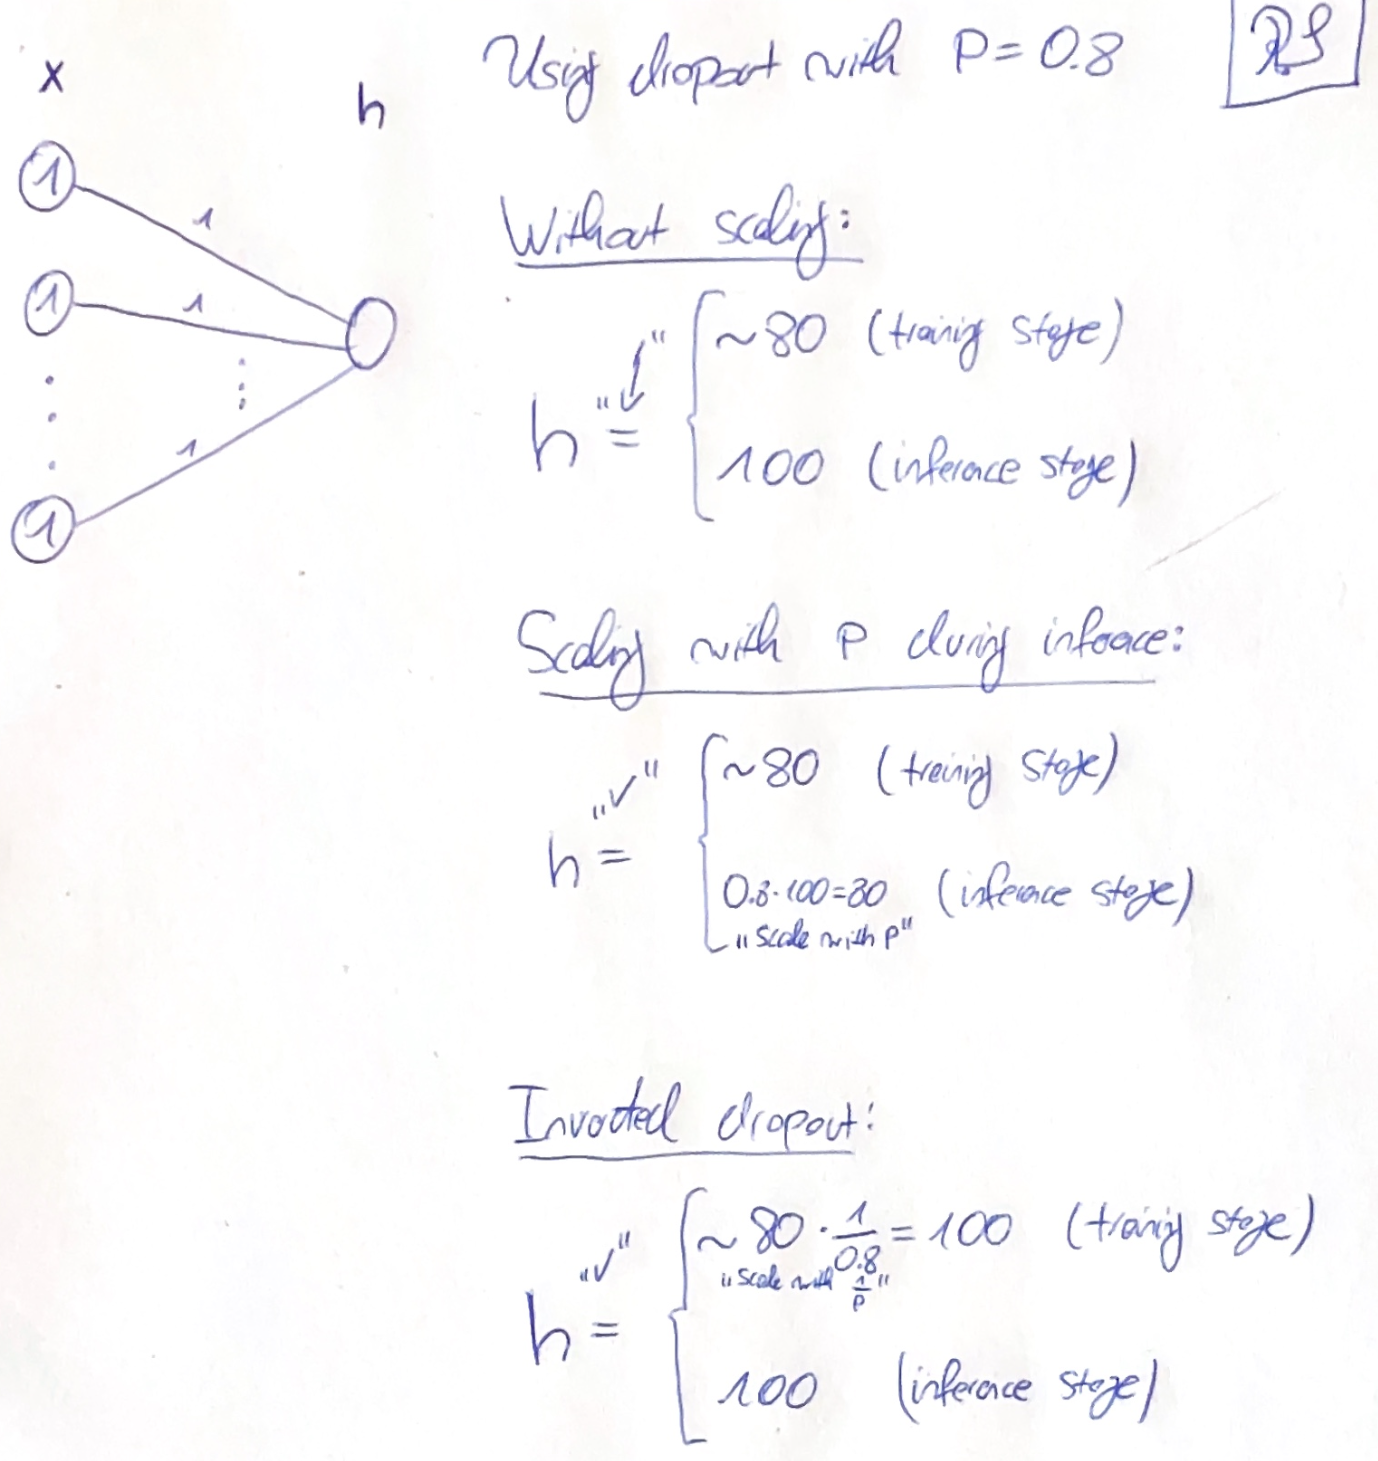 x
h
Using dropout with P = 0.8
RS
1
1
1
1
1
1
Without scaling:
h = 
~80 (training stage)
100 (inference stage)
Scaling with P during inference:
h =
"✓"
~80 (training stage)
0.8·100=80 (inference stage)
"Scale with p"
Inverted dropout:
h =
"✓"
~80 · 1/0.8 = 100 (training stage)
"Scale with 1/P"
100 (inference stage)